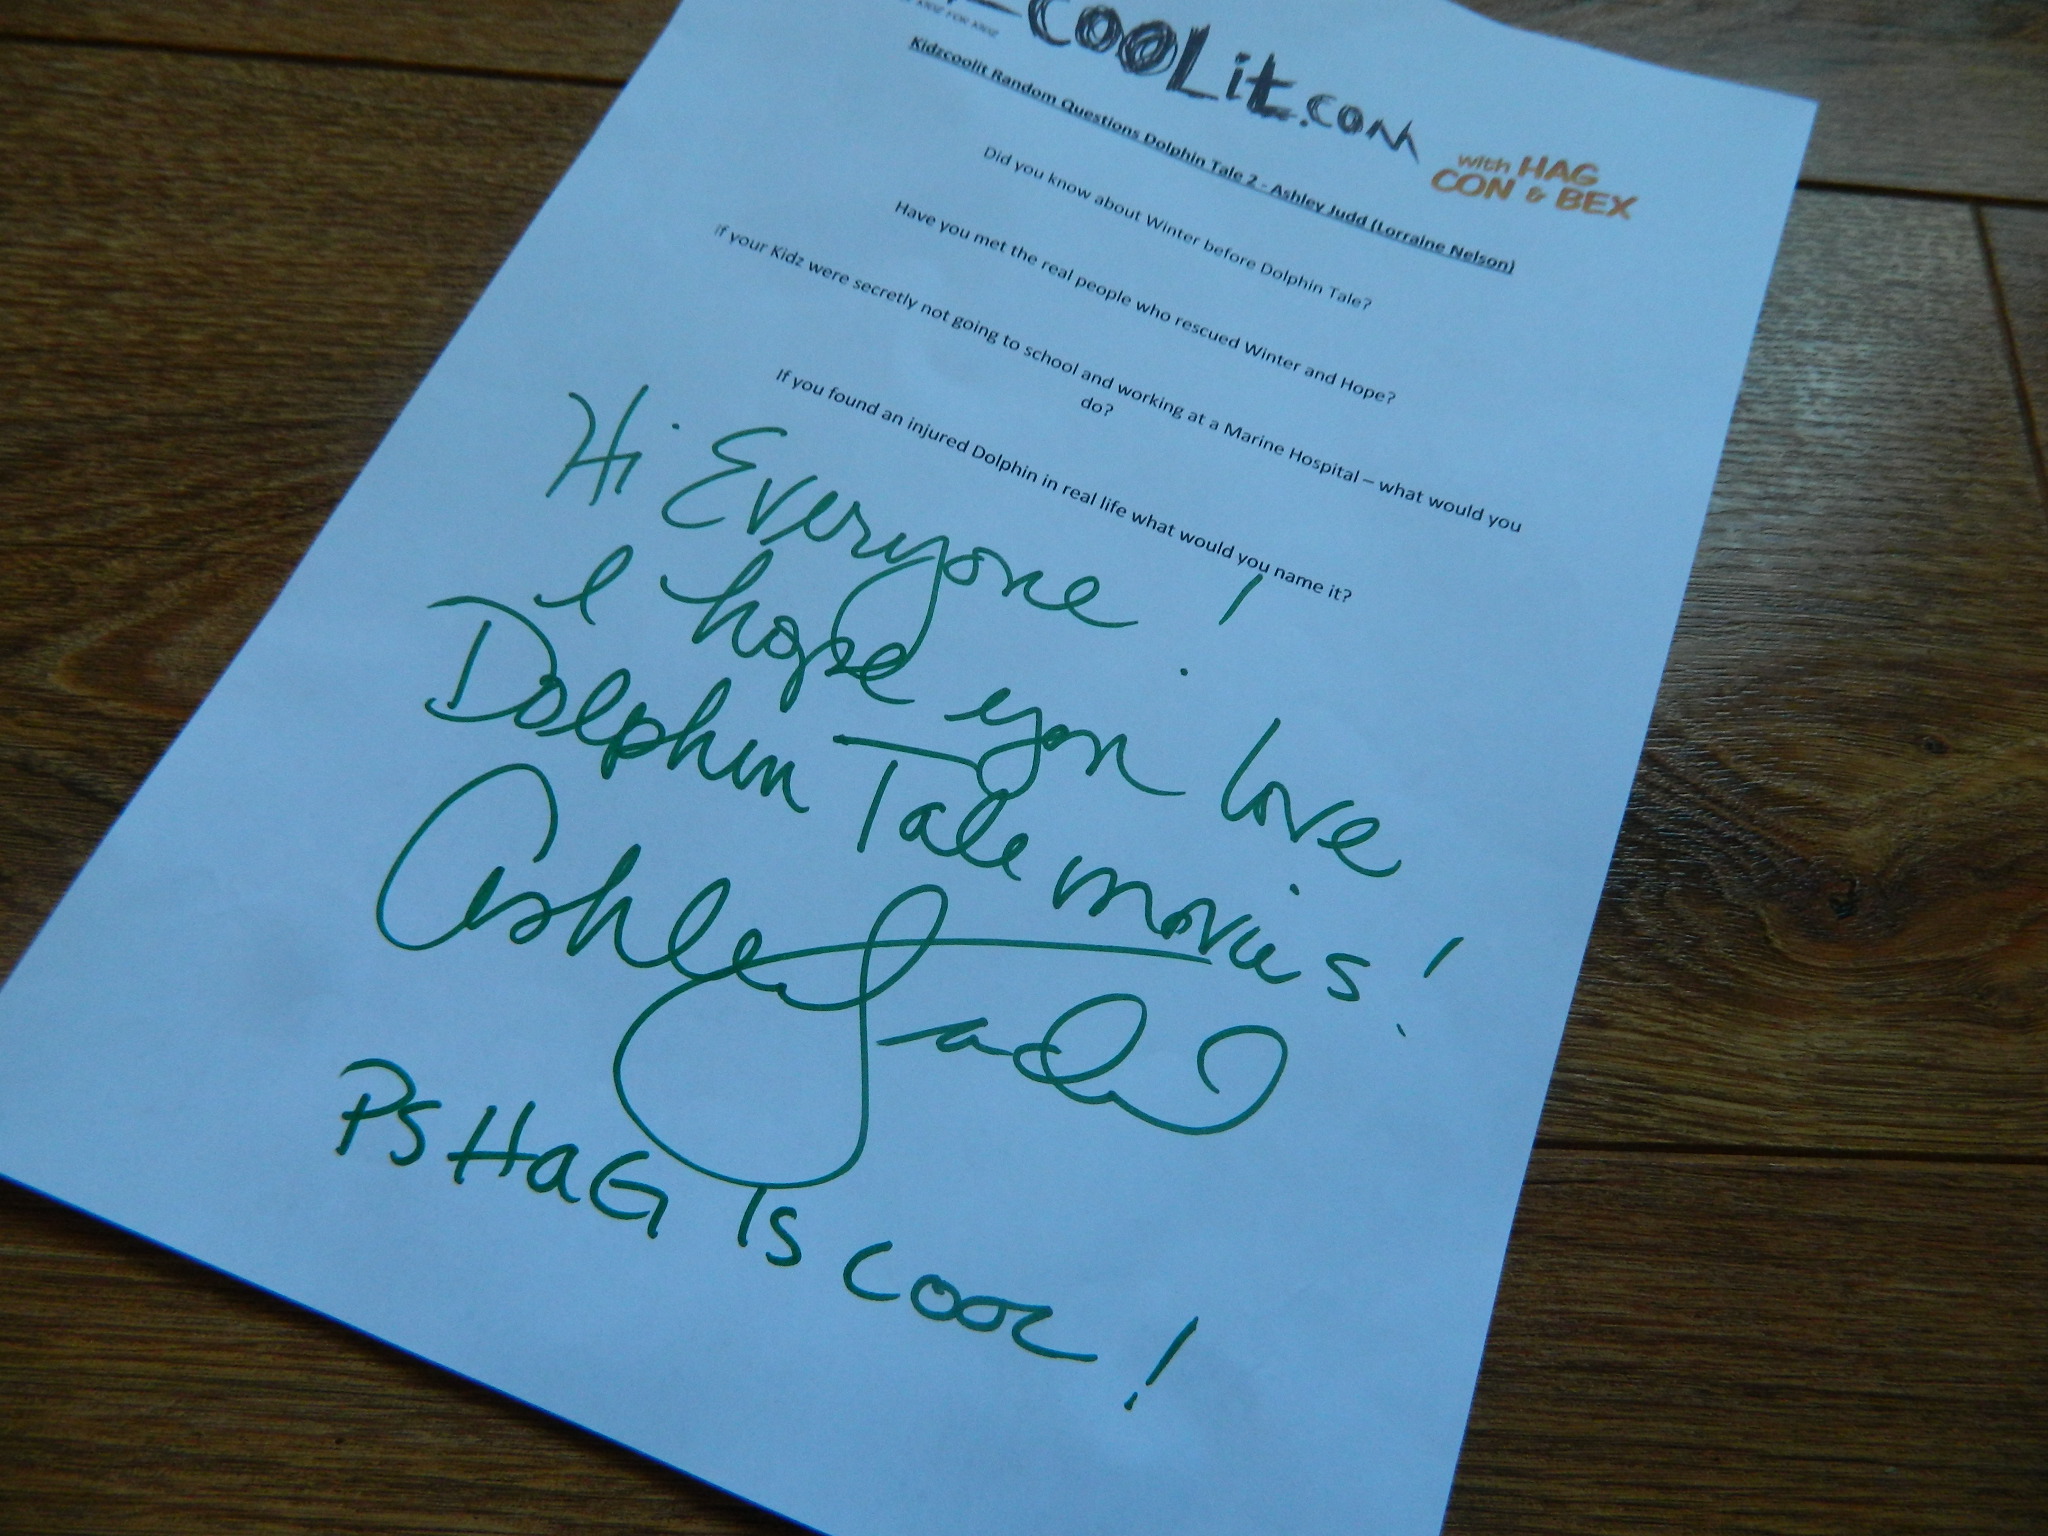 COOLit.com
with HAG
CON & BEX
Kidzcoolit Random Questions Dolphin Tale 2 - Ashley Judd (Lorraine Nelson)
Did you know about Winter before Dolphin Tale?
Have you met the real people who rescued Winter and Hope?
if your Kidz were secretly not going to school and working at a Marine Hospital – what would you
do?
If you found an injured Dolphin in real life what would you name it?
Hi Everyone!
I hope you love
Dolphin Tale movies!
Ashley Judd
PS HaG is cool!